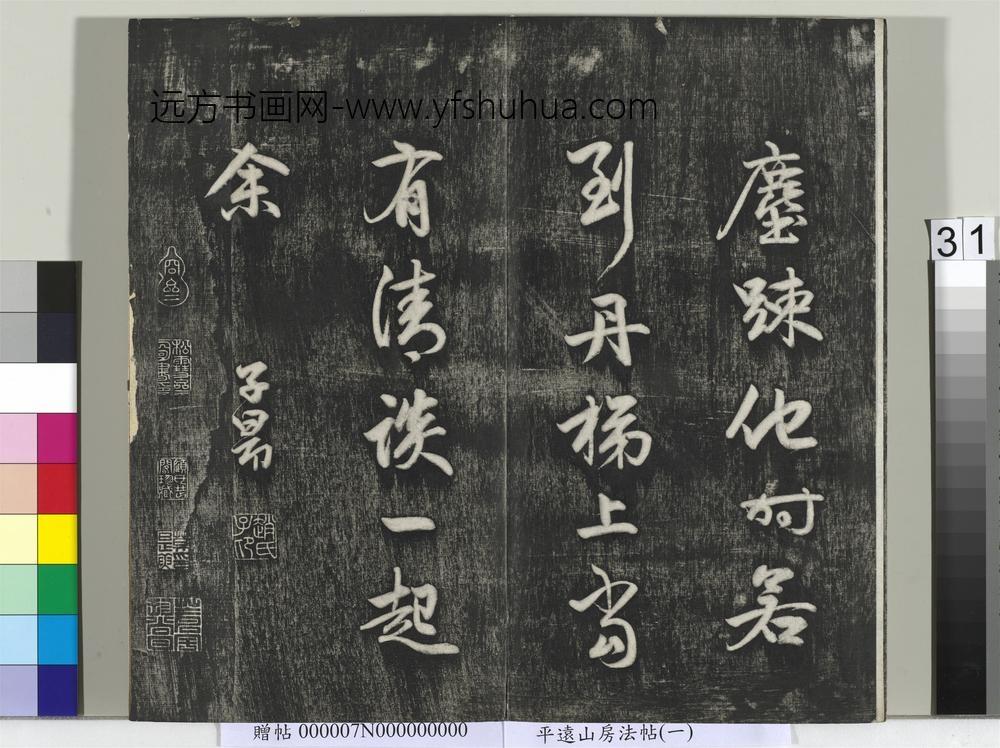 远方书画网-www.yfshuhua.com
塵踈他时若
到丹梯上當
有清談一起
余
子昂
趙氏子昂
31
贈帖 000007N000000000
平遠山房法帖(一)